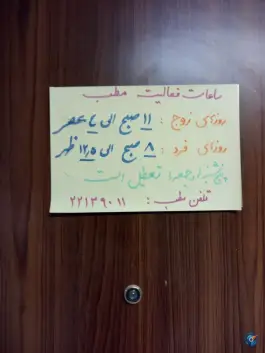 ساعات فعالیت مطب
روزهای زوج : ۱۱ صبح الی ۴ عصر
روزهای فرد : ۸ صبح الی ۱۲,۵ ظهر
پنج شنبه و جمعه تعطیل است
تلفن مطب : ۲۲۱۳۹۰۱۱